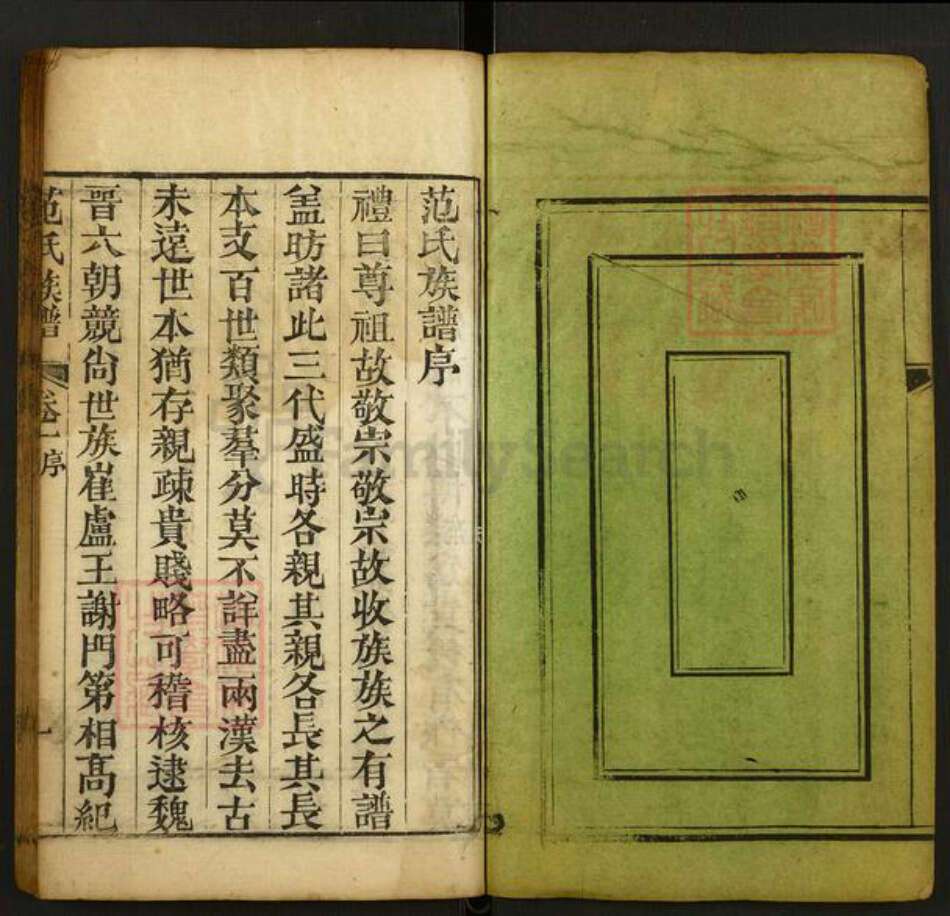 范氏族譜序
禮曰尊祖故敬宗敬宗故收族族之有譜
盖昉諸此三代盛時各親其親各長其長
本支百世類聚羣分莫不詳盡兩漢去古
未遠世本猶存親疎貴賤略可稽核逮魏
晋六朝競尙世族崔盧王謝門第相高紀
范氏族譜 卷一序 一
FamilySearch